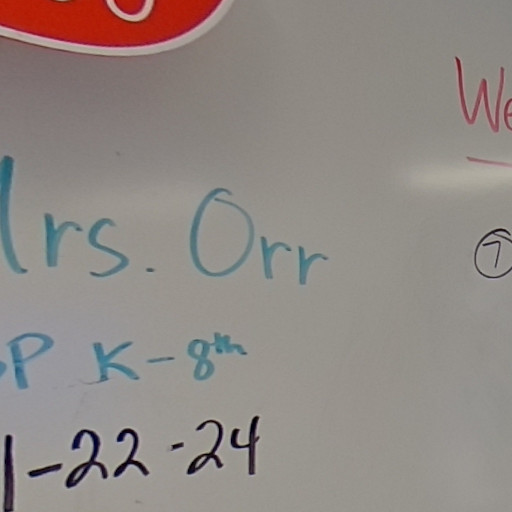 Mrs. Orr
K-8th
1-22-24
We
7